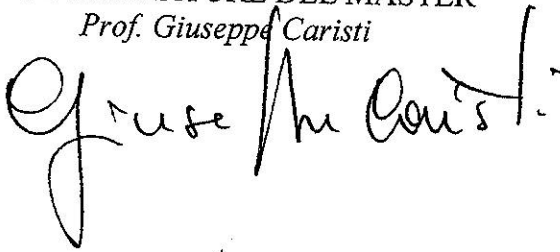 DEL MASTER
Prof. Giuseppe Caristi
Giuseppe Caristi